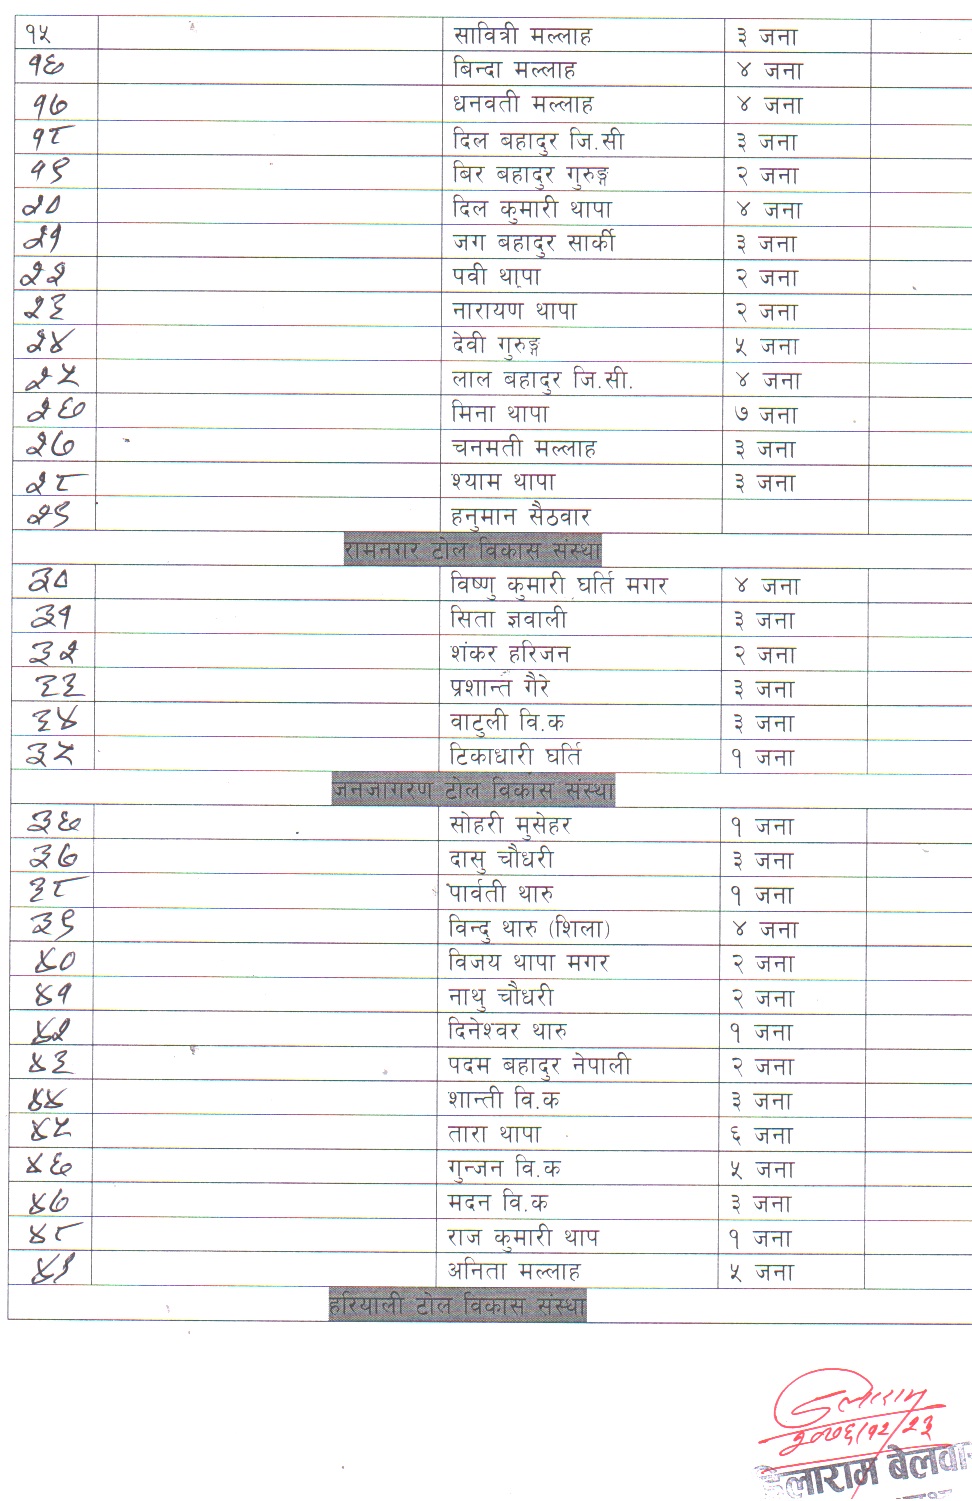 १५ सावित्री मल्लाह ३ जना
१६ बिन्दा मल्लाह ४ जना
१७ धनवती मल्लाह ४ जना
१८ दिल बहादुर जि.सी ३ जना
१९ बिर बहादुर गुरुङ्ग २ जना
२० दिल कुमारी थापा ४ जना
२१ जग बहादुर सार्की ३ जना
२२ पवी थापा २ जना
२३ नारायण थापा २ जना
२४ देवी गुरुङ्ग ५ जना
२५ लाल बहादुर जि.सी. ४ जना
२६ मिना थापा ७ जना
२७ चनमती मल्लाह ३ जना
२८ श्याम थापा ३ जना
२९ हनुमान सैठवार
रामनगर टोल विकास संस्था
३० विष्णु कुमारी घर्ति मगर ४ जना
३१ सिता ज्ञवाली ३ जना
३२ शंकर हरिजन २ जना
३३ प्रशान्त गैरे ३ जना
३४ वाटुली वि.क ३ जना
३५ टिकाधारी घर्ति १ जना
जनजागरण टोल विकास संस्था
३६ सोहरी मुसेहर १ जना
३७ दासु चौधरी ३ जना
३८ पार्वती थारु १ जना
३९ विन्दु थारु (शिला) ४ जना
४० विजय थापा मगर २ जना
४१ नाथु चौधरी २ जना
४२ दिनेश्वर थारु १ जना
४३ पदम बहादुर नेपाली २ जना
४४ शान्ती वि.क ३ जना
४५ तारा थापा ६ जना
४६ गुन्जन वि.क ५ जना
४७ मदन वि.क ३ जना
४८ राज कुमारी थाप १ जना
४९ अनिता मल्लाह ५ जना
हरियाली टोल विकास संस्था
२०७६/१२/२३
बेलवा